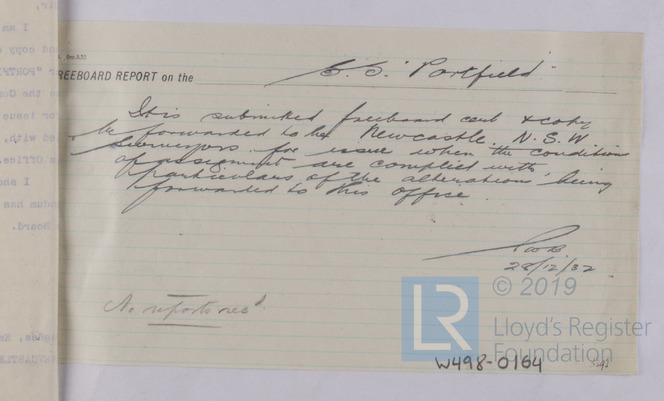 REEBOARD REPORT on the S.S. "Portfield"
It is submitted freeboard cert & copy
be forwarded to the Newcastle N.S.W
Surveyors for issue when the conditions
of assignment are complied with
particulars of the alterations being
forwarded to this office.
28/12/32
No reports recd
© 2019
LR
Lloyd's Register
Foundation
W498-0164